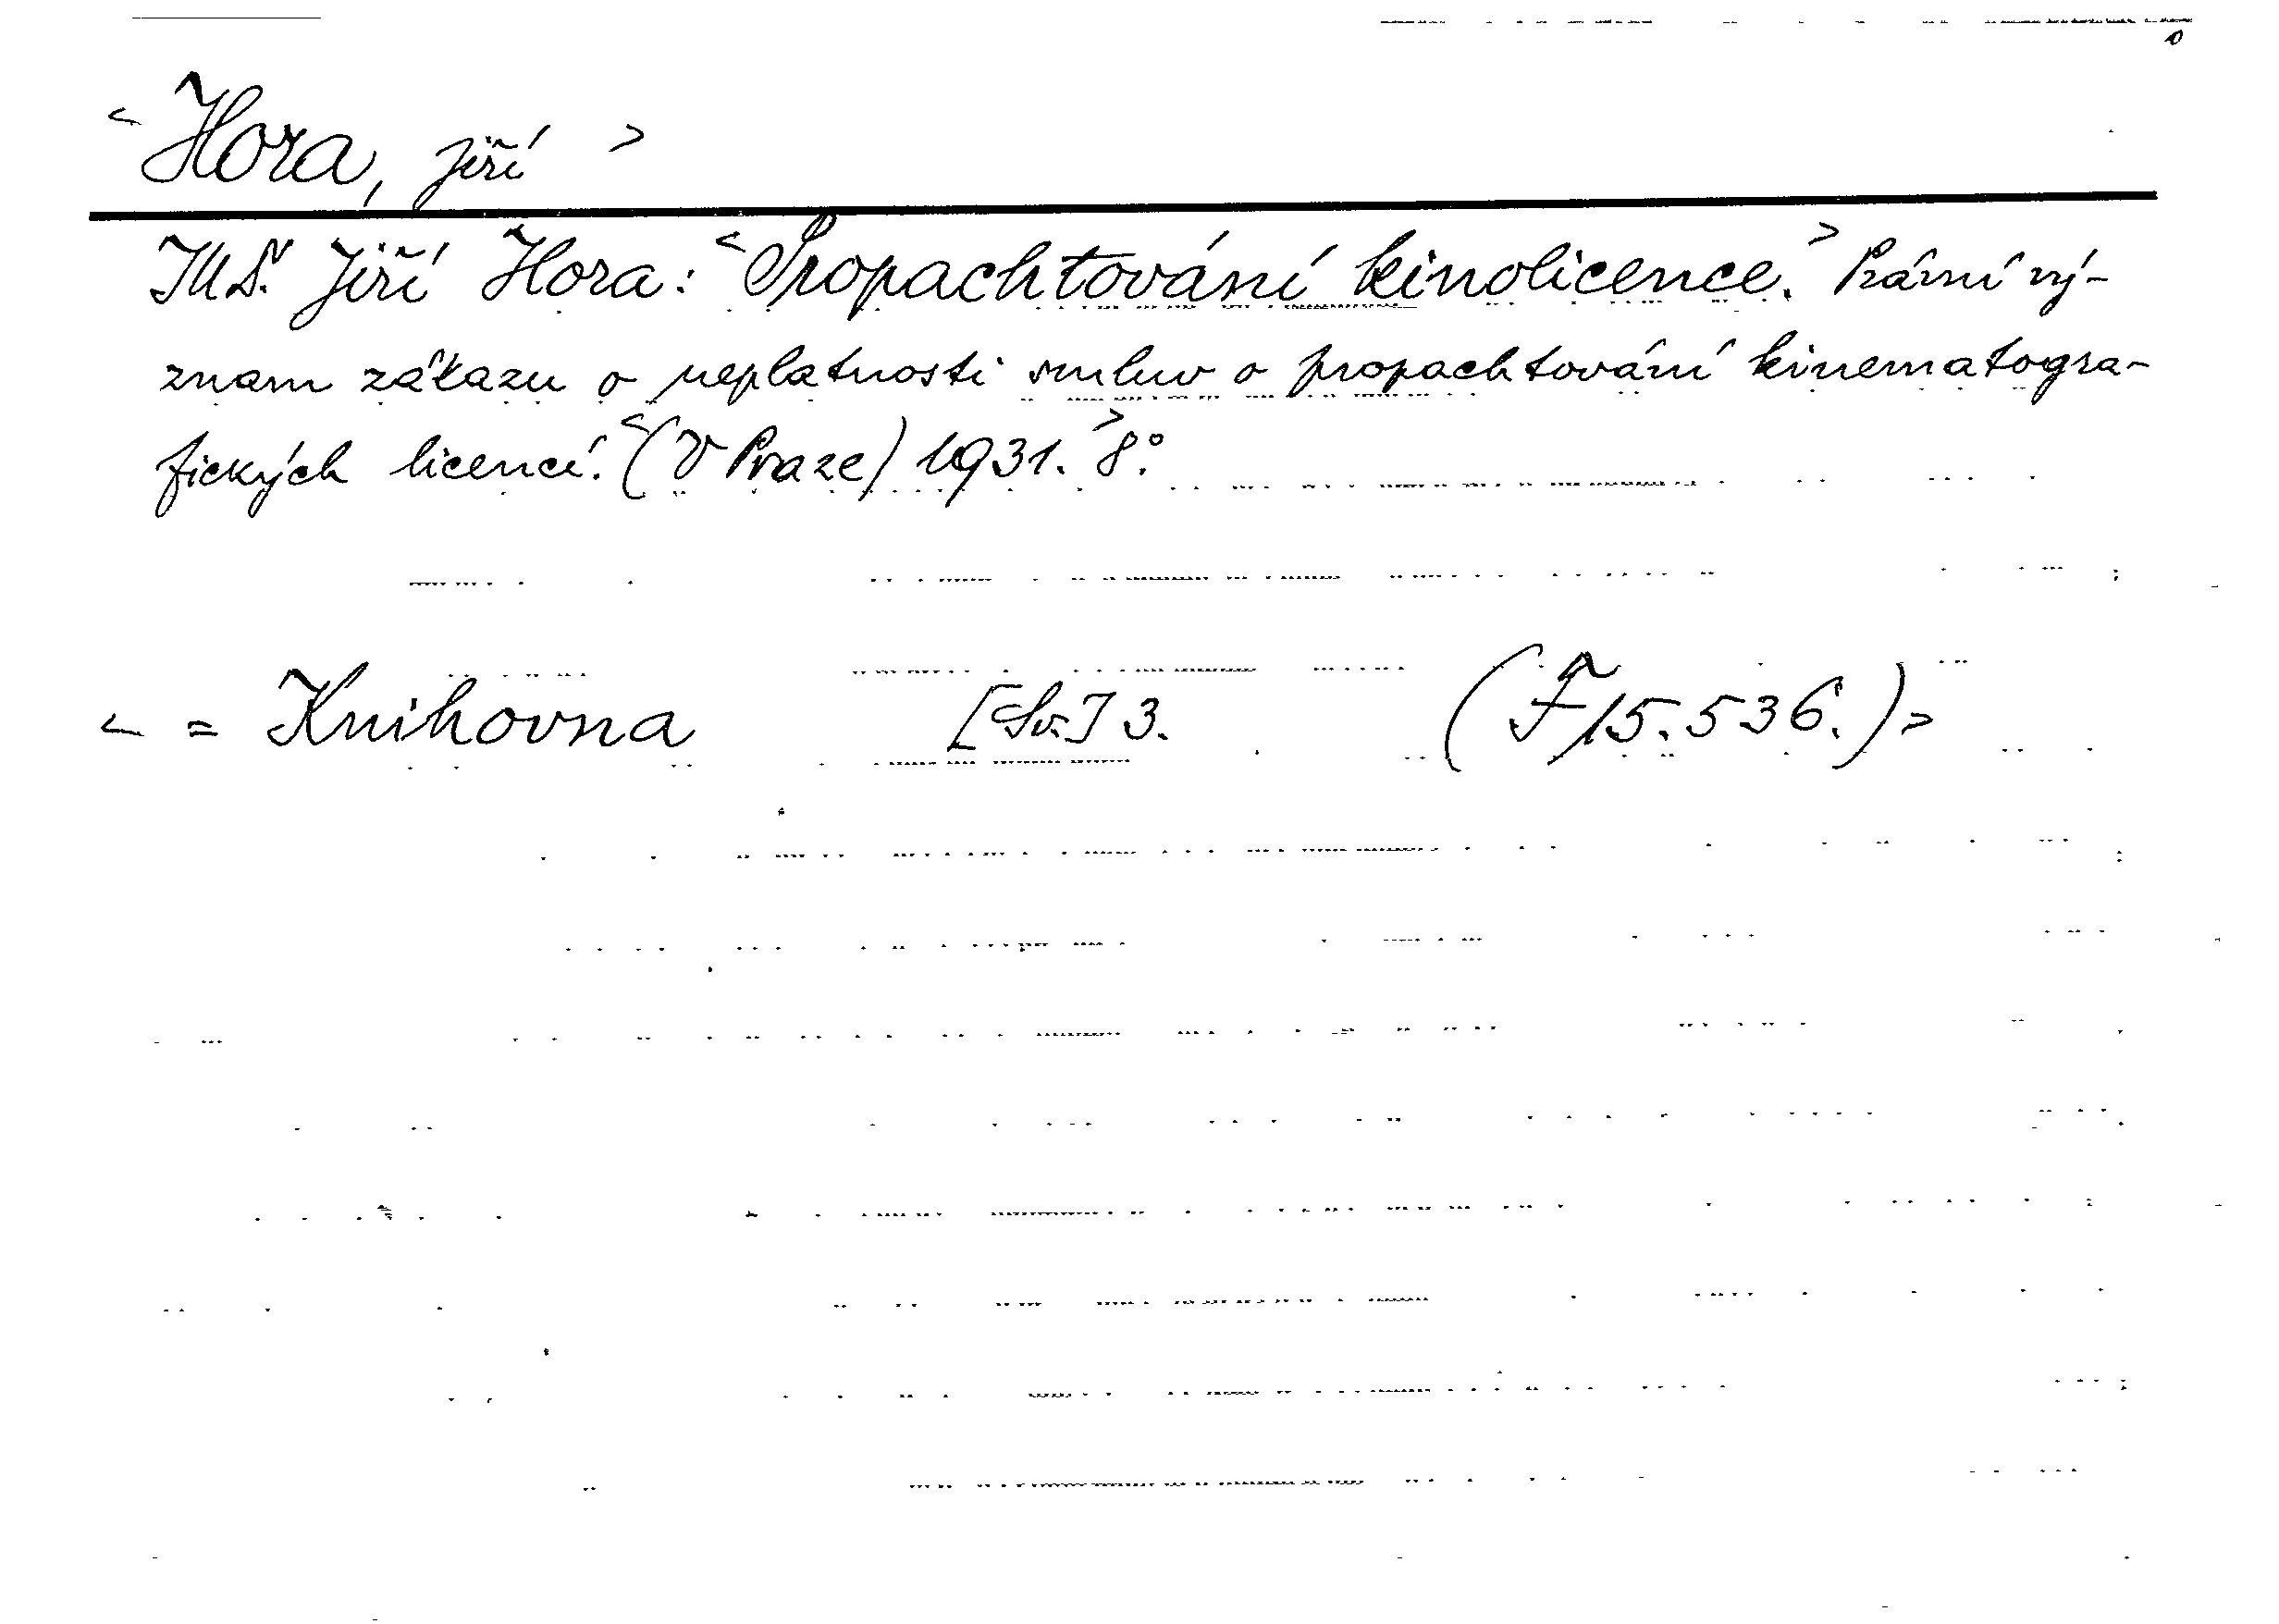 < Hora, Jiří >
JUDr. Jiří Hora: <Propachtování kinolicence.> Právní vý-
znam zákazu o neplatnosti smluv o propachtování kinematogra-
fických licencí. <(V Praze) 1931.> 8°.
< = Knihovna [Sv.] 3. (F 15.536.) >